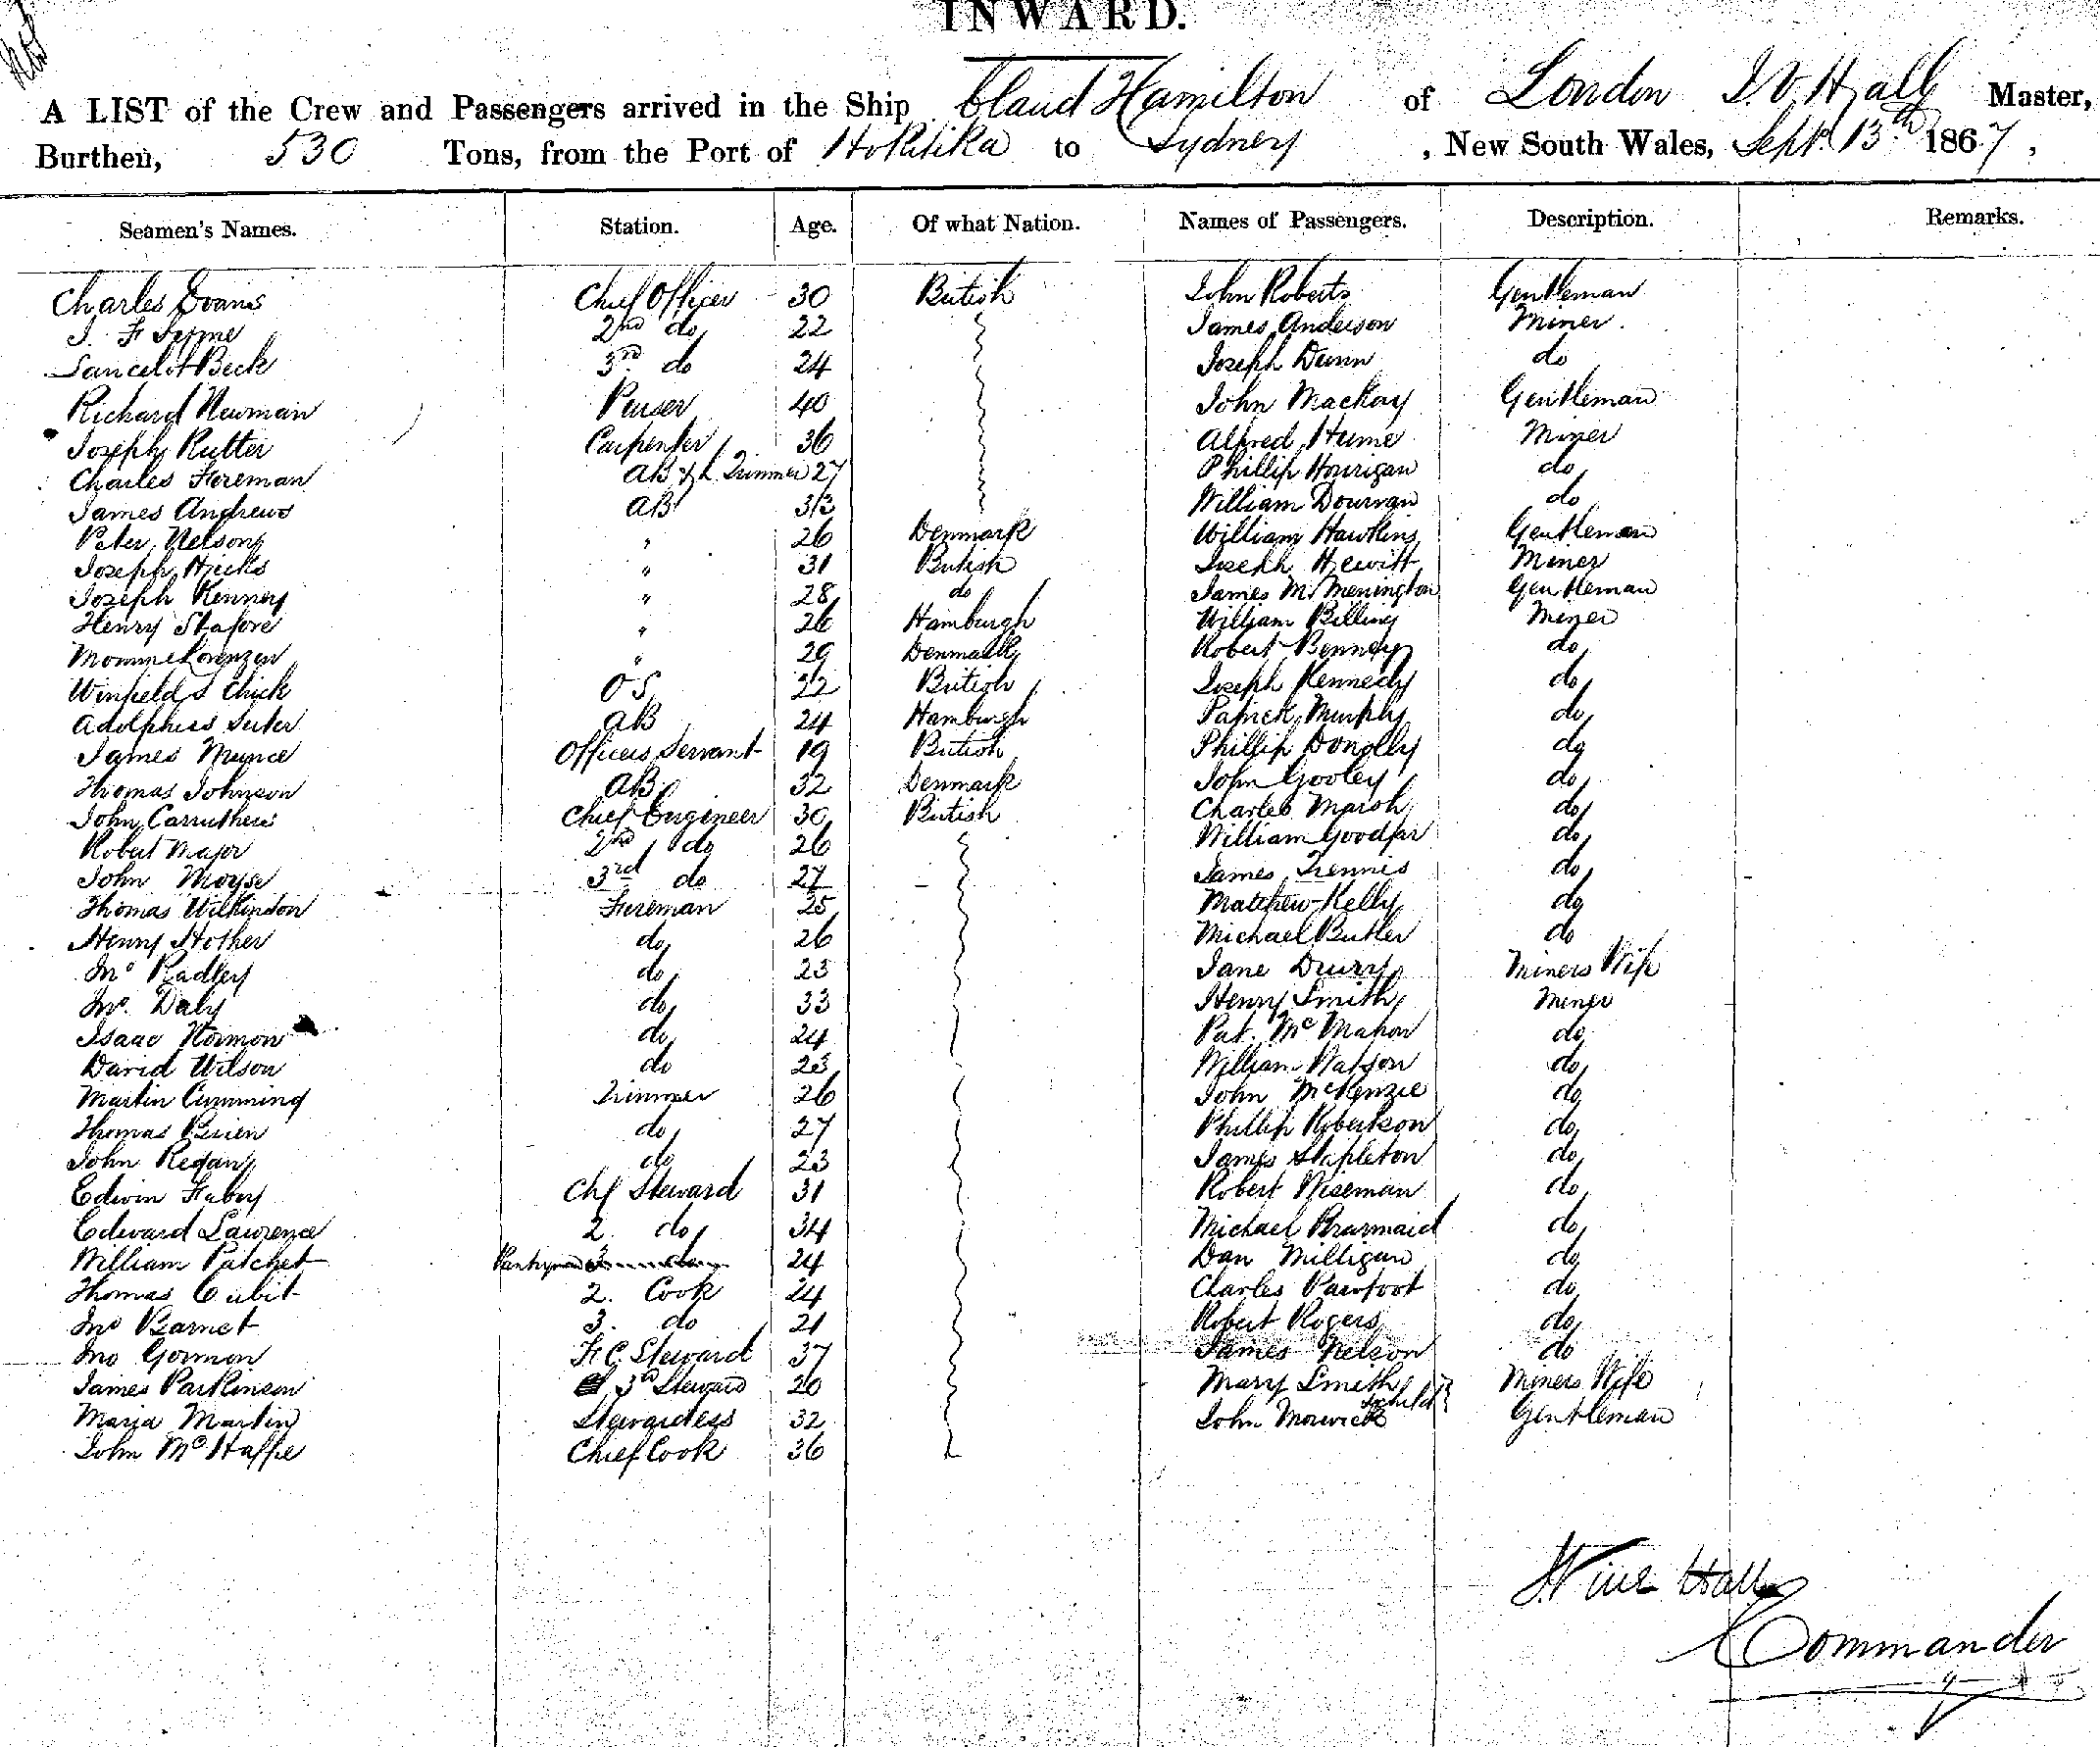 INWARD.
A LIST of the Crew and Passengers arrived in the Ship Claud Hamilton of London J.V. Hall Master,
Burthen, 530 Tons, from the Port of Hokitika to Sydney, New South Wales, Sept. 13th 1867,
Seamen's Names. Station. Age. Of what Nation. Names of Passengers. Description. Remarks.
Charles Evans Chief Officer 30 British John Roberts Gentleman
J. F Syme 2nd do 22 James Anderson Miner
Lancelot Beck 3rd do 24 Joseph Dunn do
Richard Newman Purser 40 John Mackay Gentleman
Joseph Rutter Carpenter 36 Alfred Hume Miner
Charles Fireman AB & L. Trimmer 27 Phillip Hourigan do
James Andrews AB 33 William Dournan do
Peter Nelson " 26 Denmark William Hawkins Gentleman
Joseph Hicks " 31 British Joseph Hewitt Miner
Joseph Kenney " 28 do James M. Menington Gentleman
Henry Stafore " 26 Hamburgh William Billing Miner
Momme Lorenzen " 29 Denmark Robert Benney do
Winfield S Chick OS 22 British Joseph Kennedy do
Adolphus Suter AB 24 Hamburgh Patrick Murphy do
James Munce Officers Servant 19 British Phillip Donolly do
Thomas Johnson AB 32 Denmark John Gooley do
John Carruthers Chief Engineer 30 British Charles Marsh do
Robert Major 2nd do 26 William Goodfar do
John Moyse 3rd do 27 James Trennis do
Thomas Wilkinson Fireman 25 Matthew Kelly do
Henry Hother do 26 Michael Butler do
Jno Radley do 23 Jane Drury Miners Wife
Jno. Daly do 33 Henry Smith Miner
Isaac Normon do 24 Pat. McMahon do
David Wilson do 23 William Watson do
Martin Cumming Trimmer 26 John McKenzie do
Thomas Brien do 27 Phillip Robertson do
John Regan do 23 James Stapleton do
Edwin Fabey Chf Steward 31 Robert Wiseman do
Edward Lawrence 2 do 34 Michael Brarmaid do
William Patchet 24 Dan Milligan do
Thomas Cubit 2. Cook 24 Charles Parfoot do
Jno Barnet 3. do 21 Robert Rogers do
Jno Gormon F.C. Steward 37 James Nelson do
James Parkinson 3rd Steward 20 Mary Smith & child Miners Wife
Maria Martin Stewardess 32 John Morwick Gentleman
John McHaffie Chief Cook 36
J Vine Hall
Commander